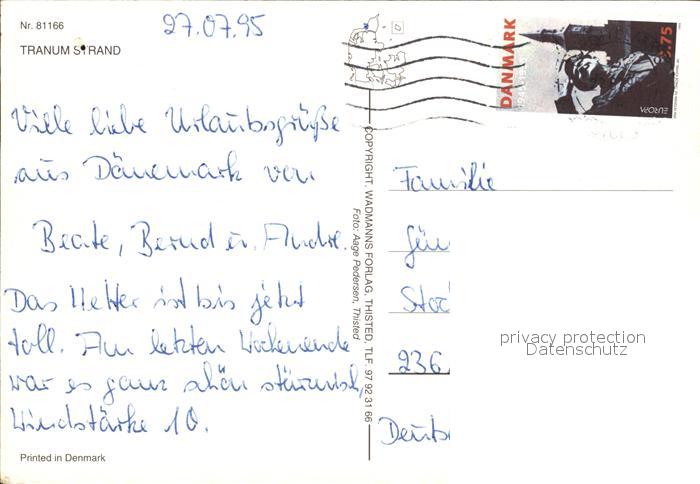 Nr. 81166
27.07.95
TRANUM STRAND
DANMARK
3.75
EUROPA
Viele liebe Urlaubsgrüße
aus Dänemark von
Beate, Bernd u. Andre.
Das Wetter ist bis jetzt
toll. Am letzten Wochenende
war es ganz schön stürmisch,
Windstärke 10.
Printed in Denmark
COPYRIGHT. WADMANNS FORLAG, THISTED, TLF. 97 92 31 66
Foto: Aage Pedersen, Thisted
Familie
Gün
Stoc
236
Deuts
privacy protection
Datenschutz